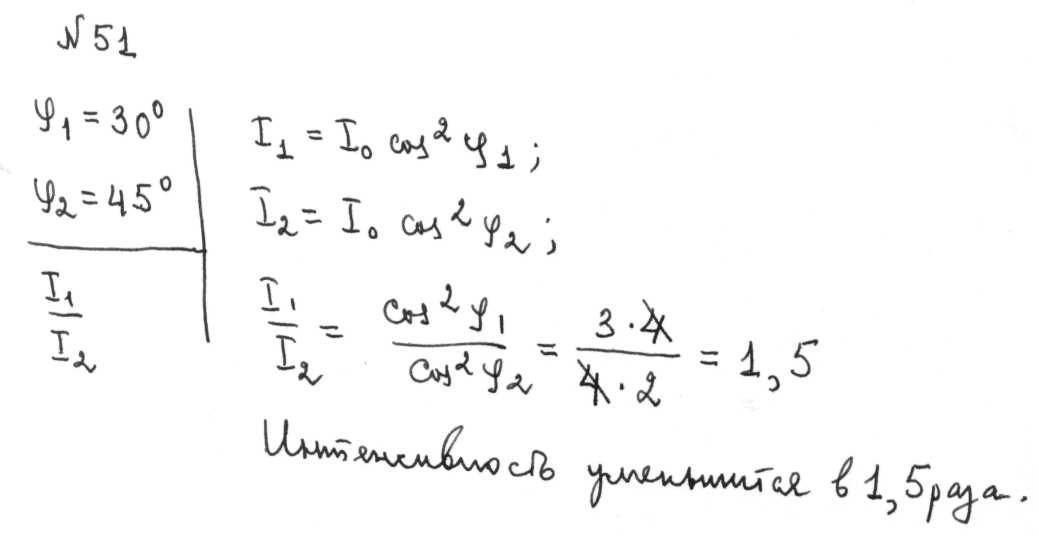 N 51
φ₁ = 30⁰
φ₂ = 45⁰
I₁/I₂
I₁ = I₀ cos² φ₁;
I₂ = I₀ cos² φ₂;
I₁/I₂ = cos² φ₁/cos² φ₂ = 3·4/4·2 = 1,5
Интенсивность уменьшится в 1,5 раза.